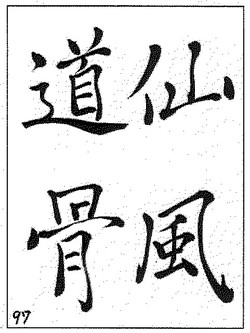 仙風
道骨
97